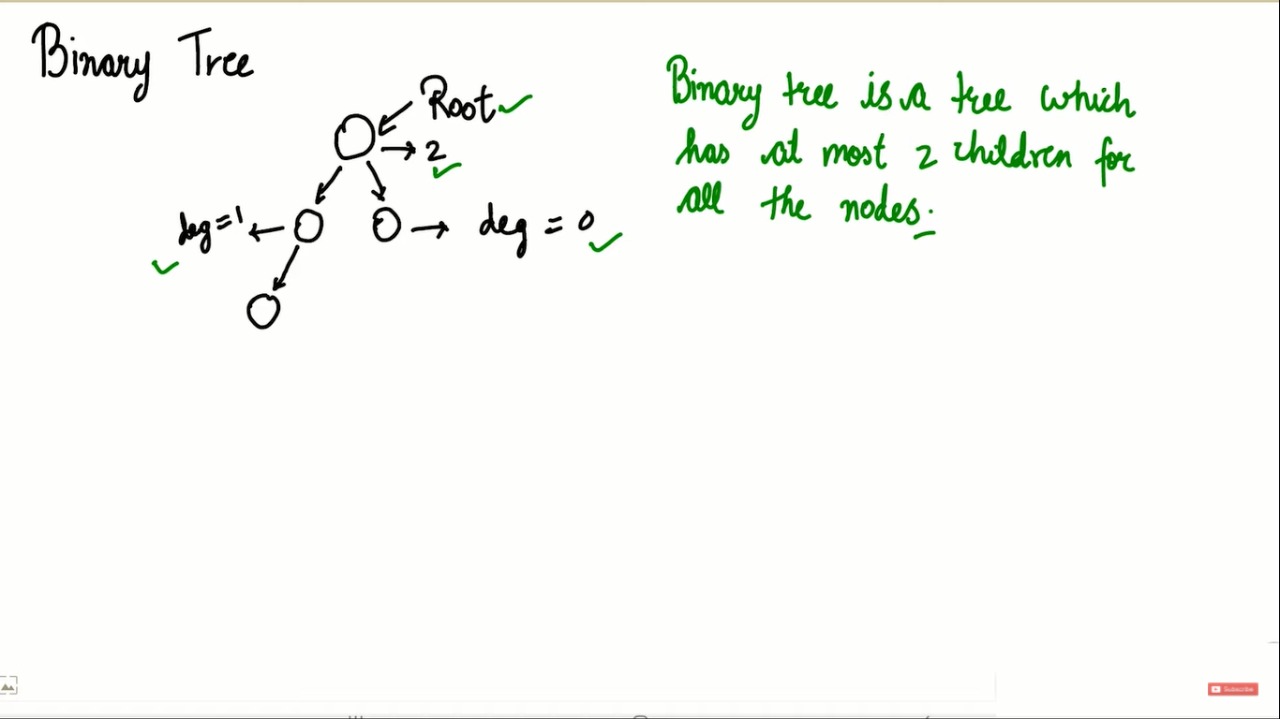 Binary Tree
Root
2
deg=1
deg = 0
Binary tree is a tree which
has at most 2 children for
all the nodes.
Subscribe